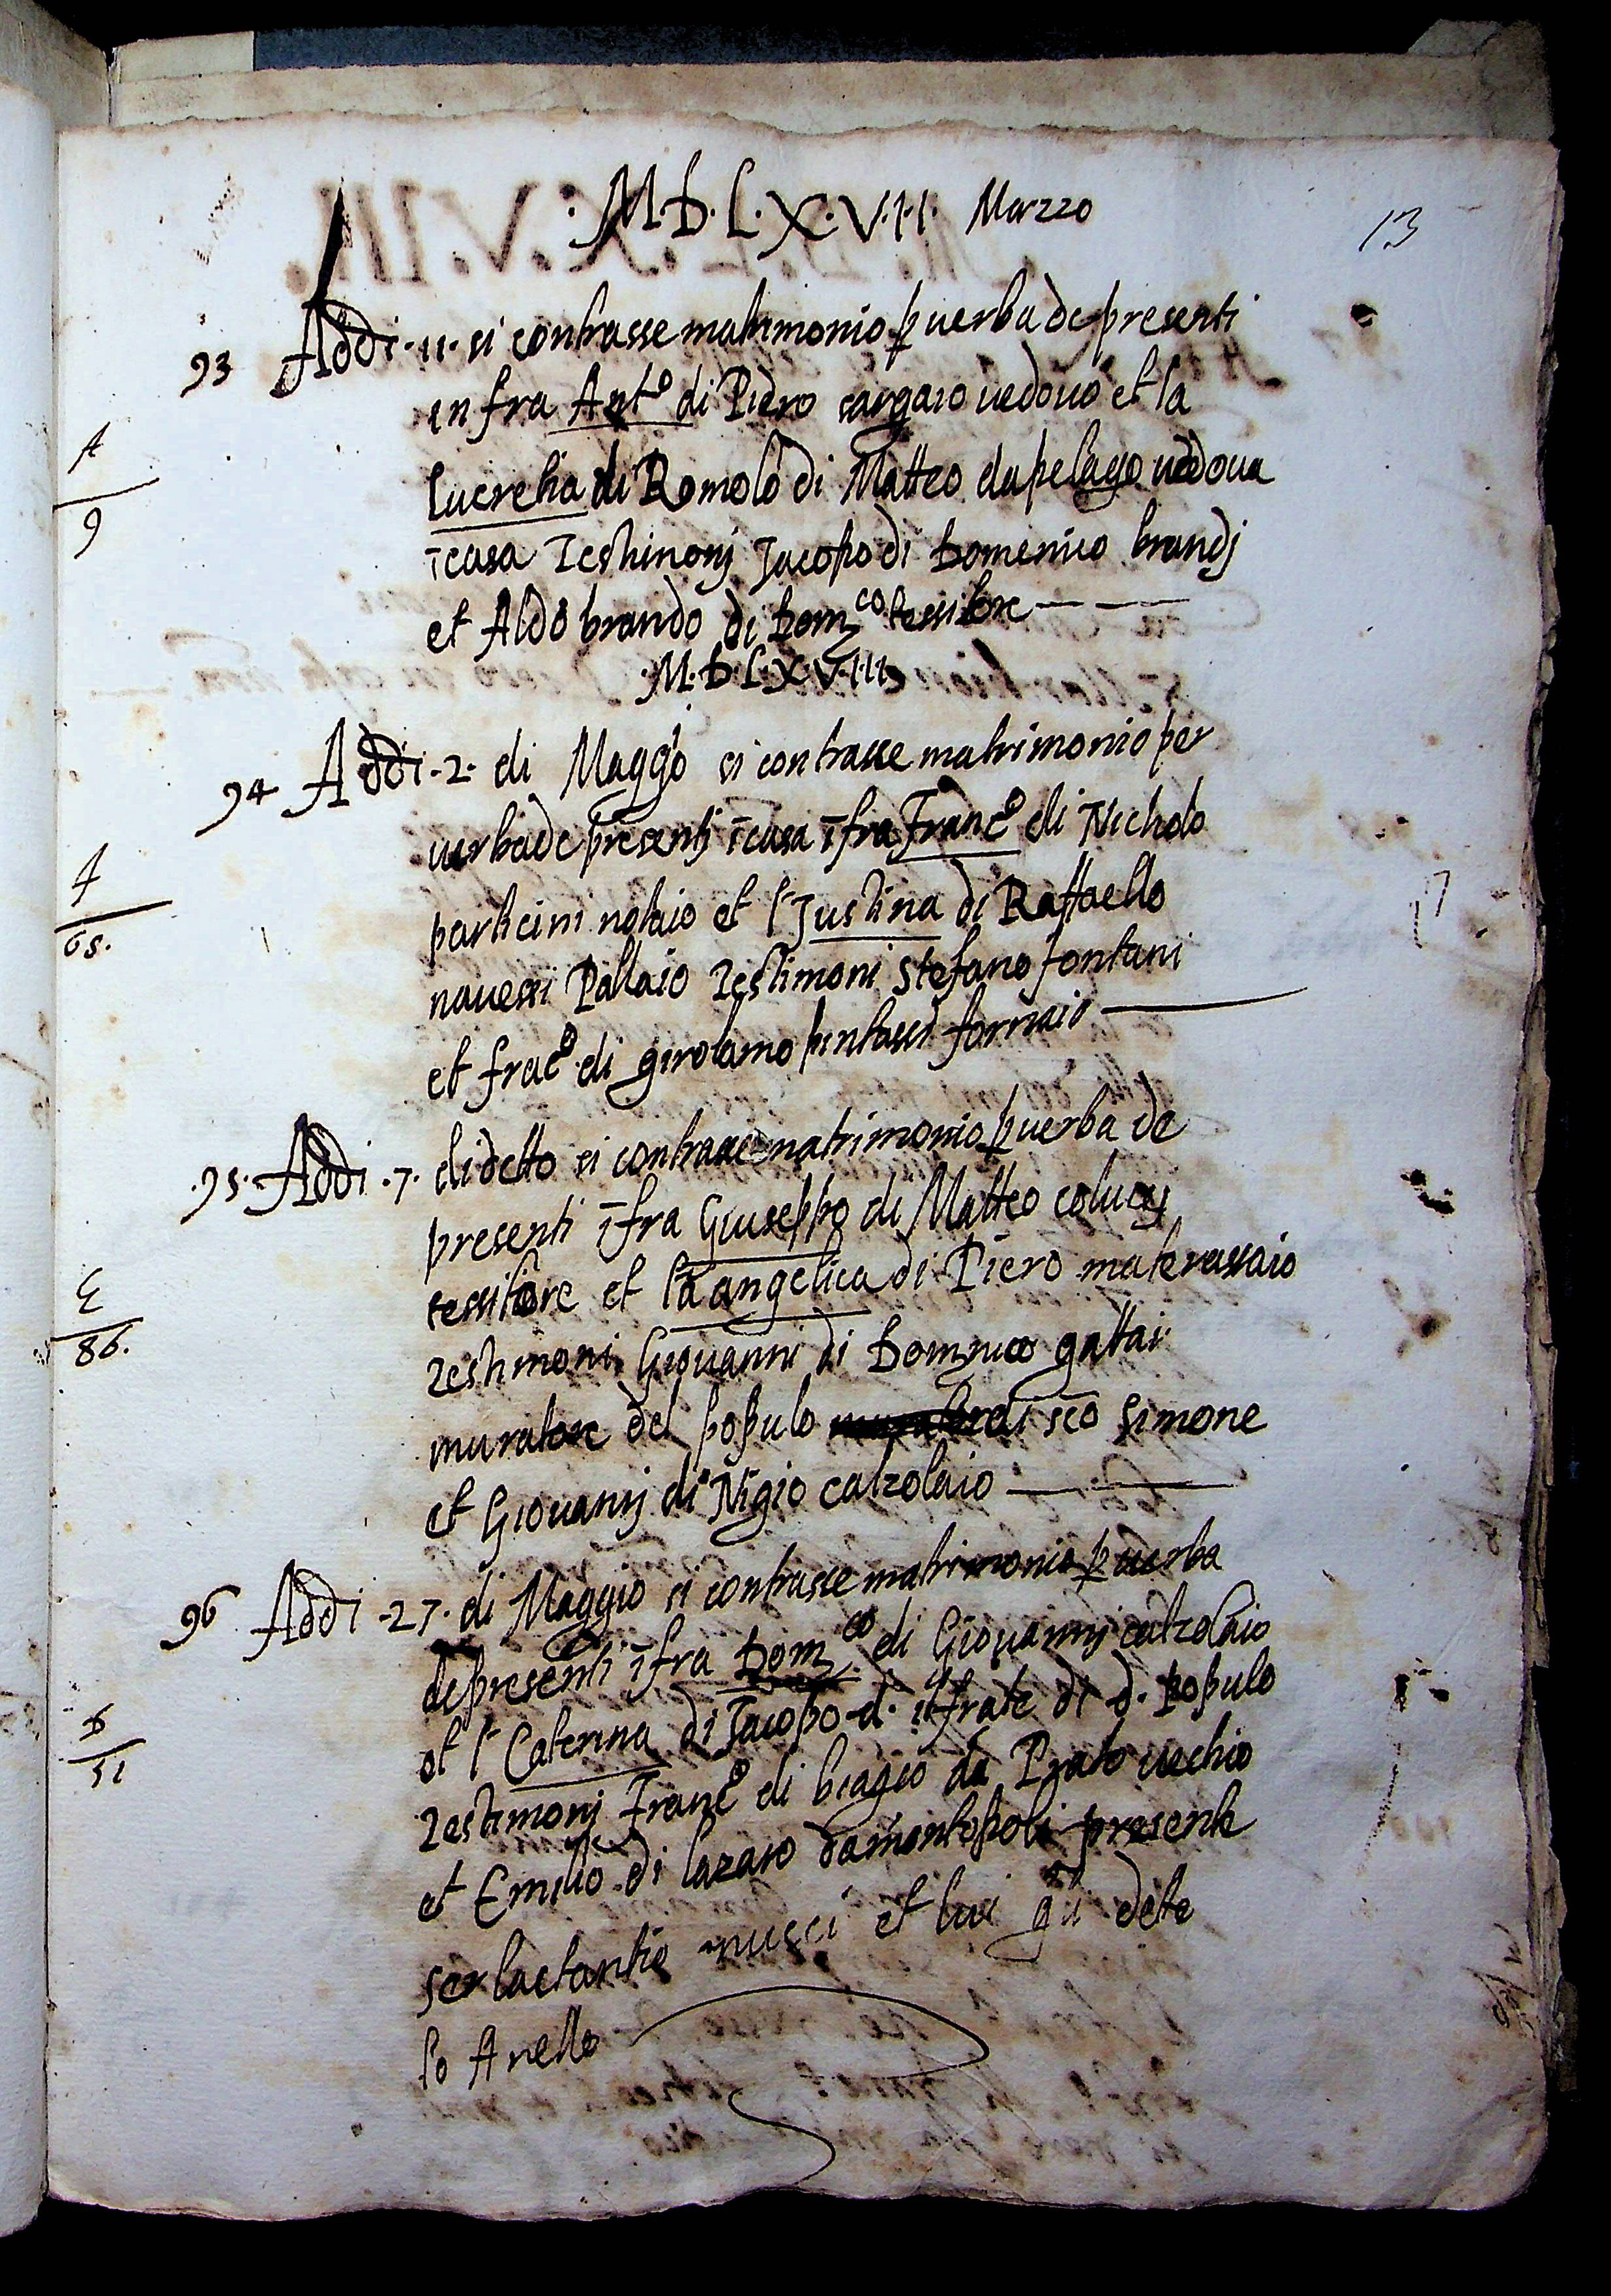 .M.D.L.X.V.I.I. Marzo
13
93 Addi .11. si contrasse matrimonio p uerba de presenti
in fra Ant.o di Piero sargaio uedouo et la
Lucretia di Romolo di Matteo da pelago uedoua
ī casa Testimonj Jacopo di Domenico brandj
et Aldobrando di Dom.co tessitore
A
9
.M.D.L.X.V.III
94 Addi .2. di Maggio si contrasse matrimonio per
uerba de presentj ī casa īfra Franc.o di Nicholo
particini notaio et l Justina di Raffaello
nauessi Pallaio Testimoni Stefano fontani
et frac.o di girolamo pintassi fornaio
f
65.
.95. Addi .7. di detto si contrasse matrimonio p uerba de
presenti īfra Giuseppo di Matteo colucij
tessitore et la angelica di Piero materassaio
Testimoni Giouanni di Domenico gattai
muratore del popolo di sco Simone
et Giouanj di Nigio calzolaio
G
86.
96 Addi .27. di Maggio si contrasse matrimonio p uerba
de presenti īfra Dom.co di Giouannj calzolaio
et l Caterina di Jacopo d. il frate di d. Populo
Testimonj Franc.o di biagio da Prato uechio
et Emilio di lazaro da montopoli presente
ser lactantio nucci et lui gli dete
lo Anello
D
51